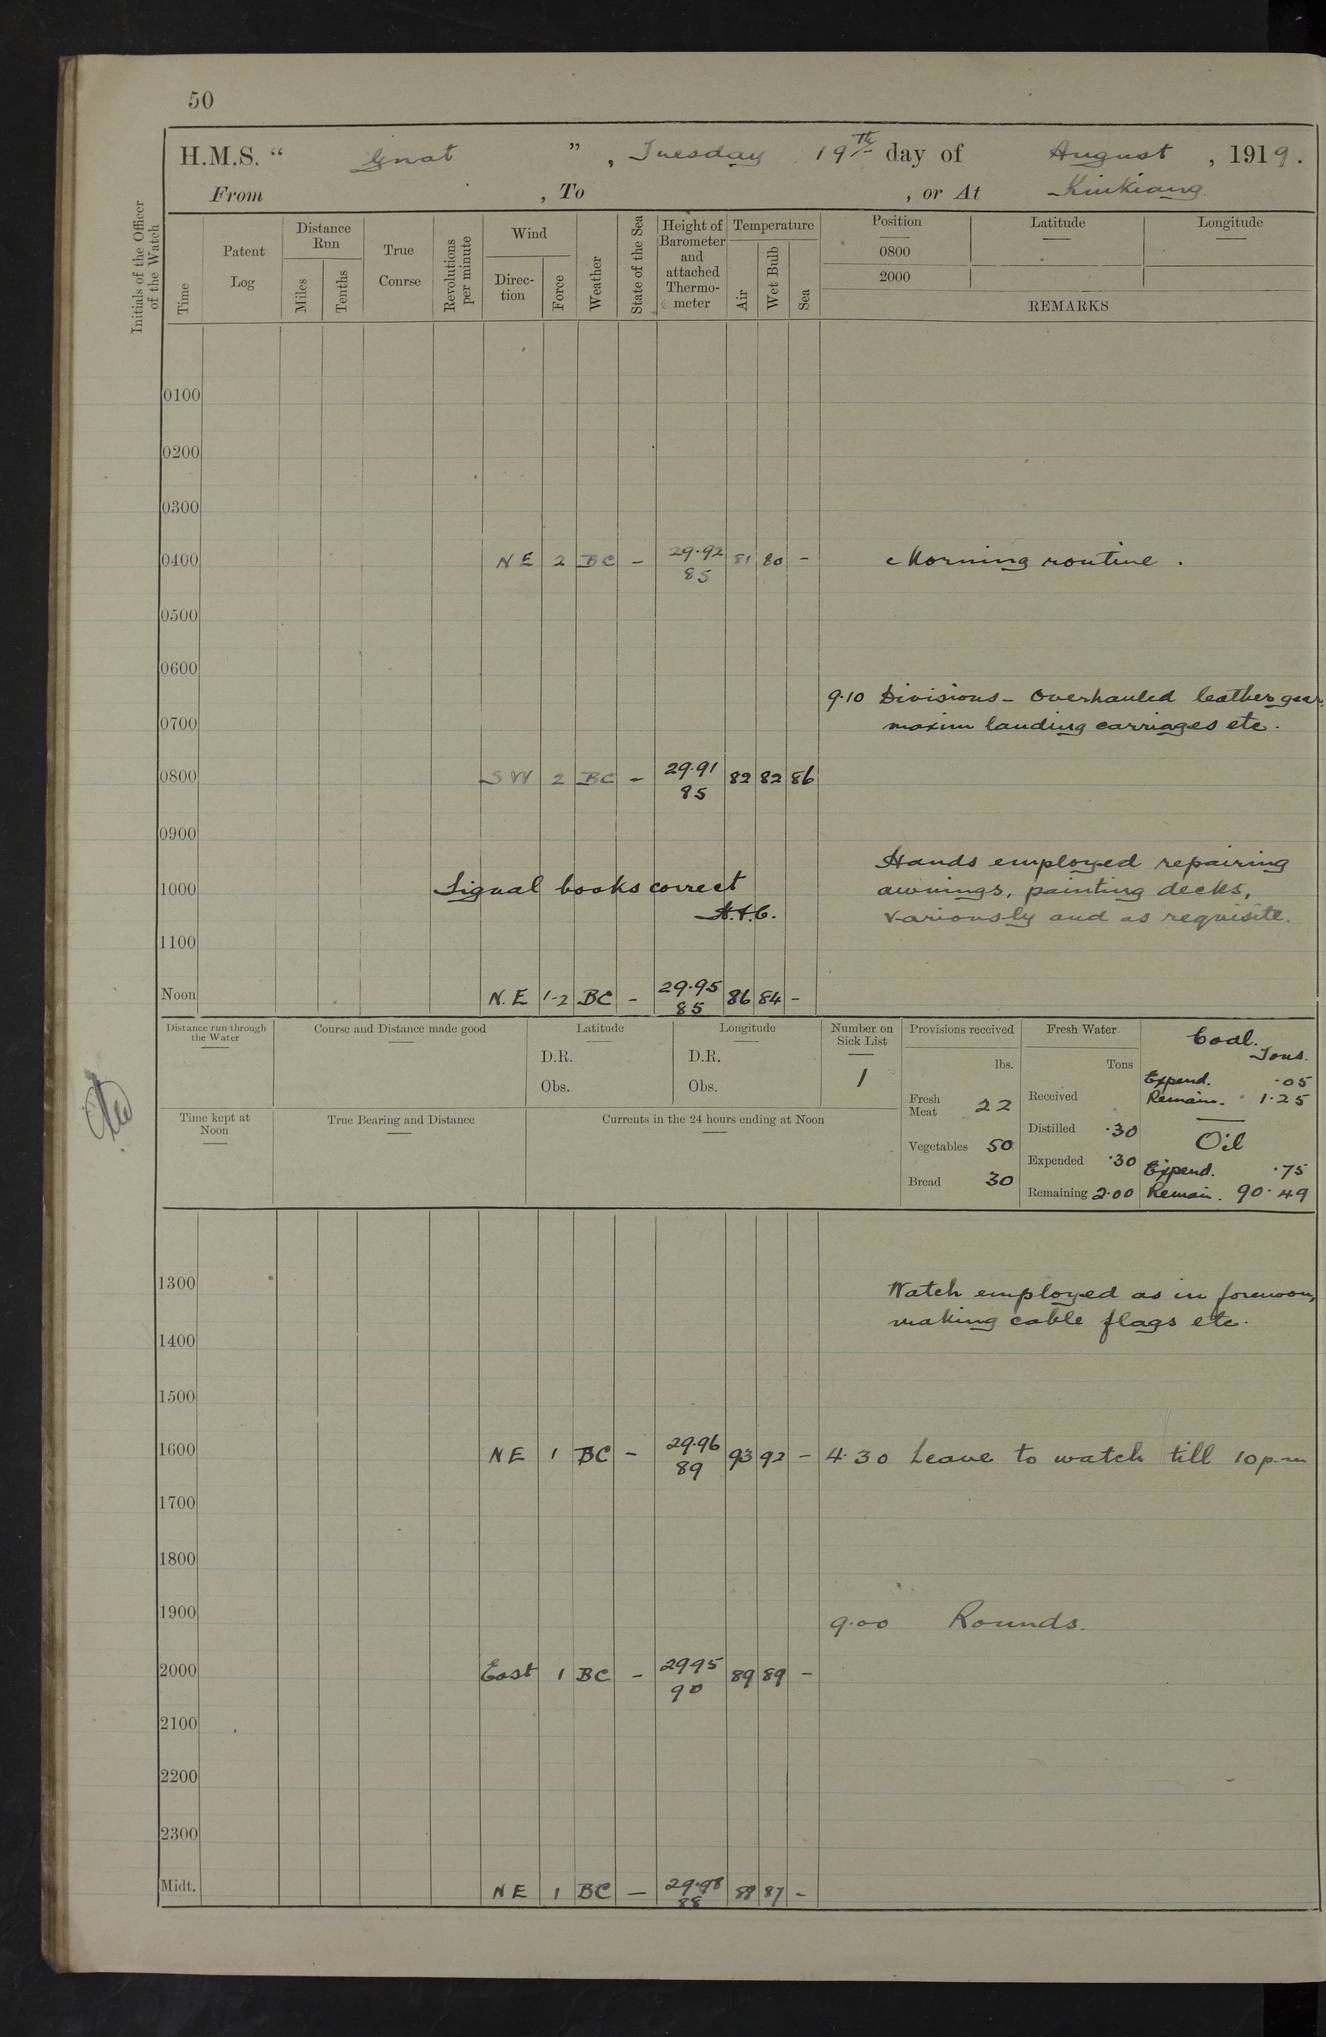 50
H.M.S. “ Gnat ” , Tuesday 19th day of August , 1919.
From , To , or At Kiukiang
Initials of the Officer of the Watch
Time
Patent Log
Distance Run
Miles
Tenths
True Course
Revolutions per minute
Wind
Direction
Force
Weather
State of the Sea
Height of Barometer and attached Thermometer
Temperature
Air
Wet Bulb
Sea
Position Latitude Longitude
0800
2000
REMARKS
0100
0200
0300
0400 NE 2 BC – 29.92 81 80 – Morning routine .
85
0500
0600
9.10 Divisions – Overhauled leather gear,
0700 maxim landing carriages etc.
0800 SW 2 BC – 29.91 82 82 86
85
0900
Hands employed repairing
1000 Signal books correct awnings, painting decks,
variously and as requisite.
1100
Noon N.E 1-2 BC – 29.95 86 84 –
85
Distance run through the Water
Course and Distance made good
Latitude
D.R.
Obs.
Longitude
D.R.
Obs.
Number on Sick List
1
Time kept at Noon
True Bearing and Distance
Currents in the 24 hours ending at Noon
Provisions received
lbs.
Fresh Meat 22
Vegetables 50
Bread 30
Fresh Water.
Tons
Received
Distilled .30
Expended .30
Remaining 2.00
Coal.
Tons.
Expend. .05
Remain. 1.25
Oil
Expend. .75
Remain. 90.49
1300 Watch employed as in forenoon,
making cable flags etc.
1400
1500
1600 NE 1 BC – 29.96 93 92 – 4.30 Leave to watch till 10 p.m
89
1700
1800
1900 9.00 Rounds.
2000 East 1 BC – 2995 89 89 –
90
2100
2200
2300
Midt. NE 1 BC – 29.98 88 87 –
88